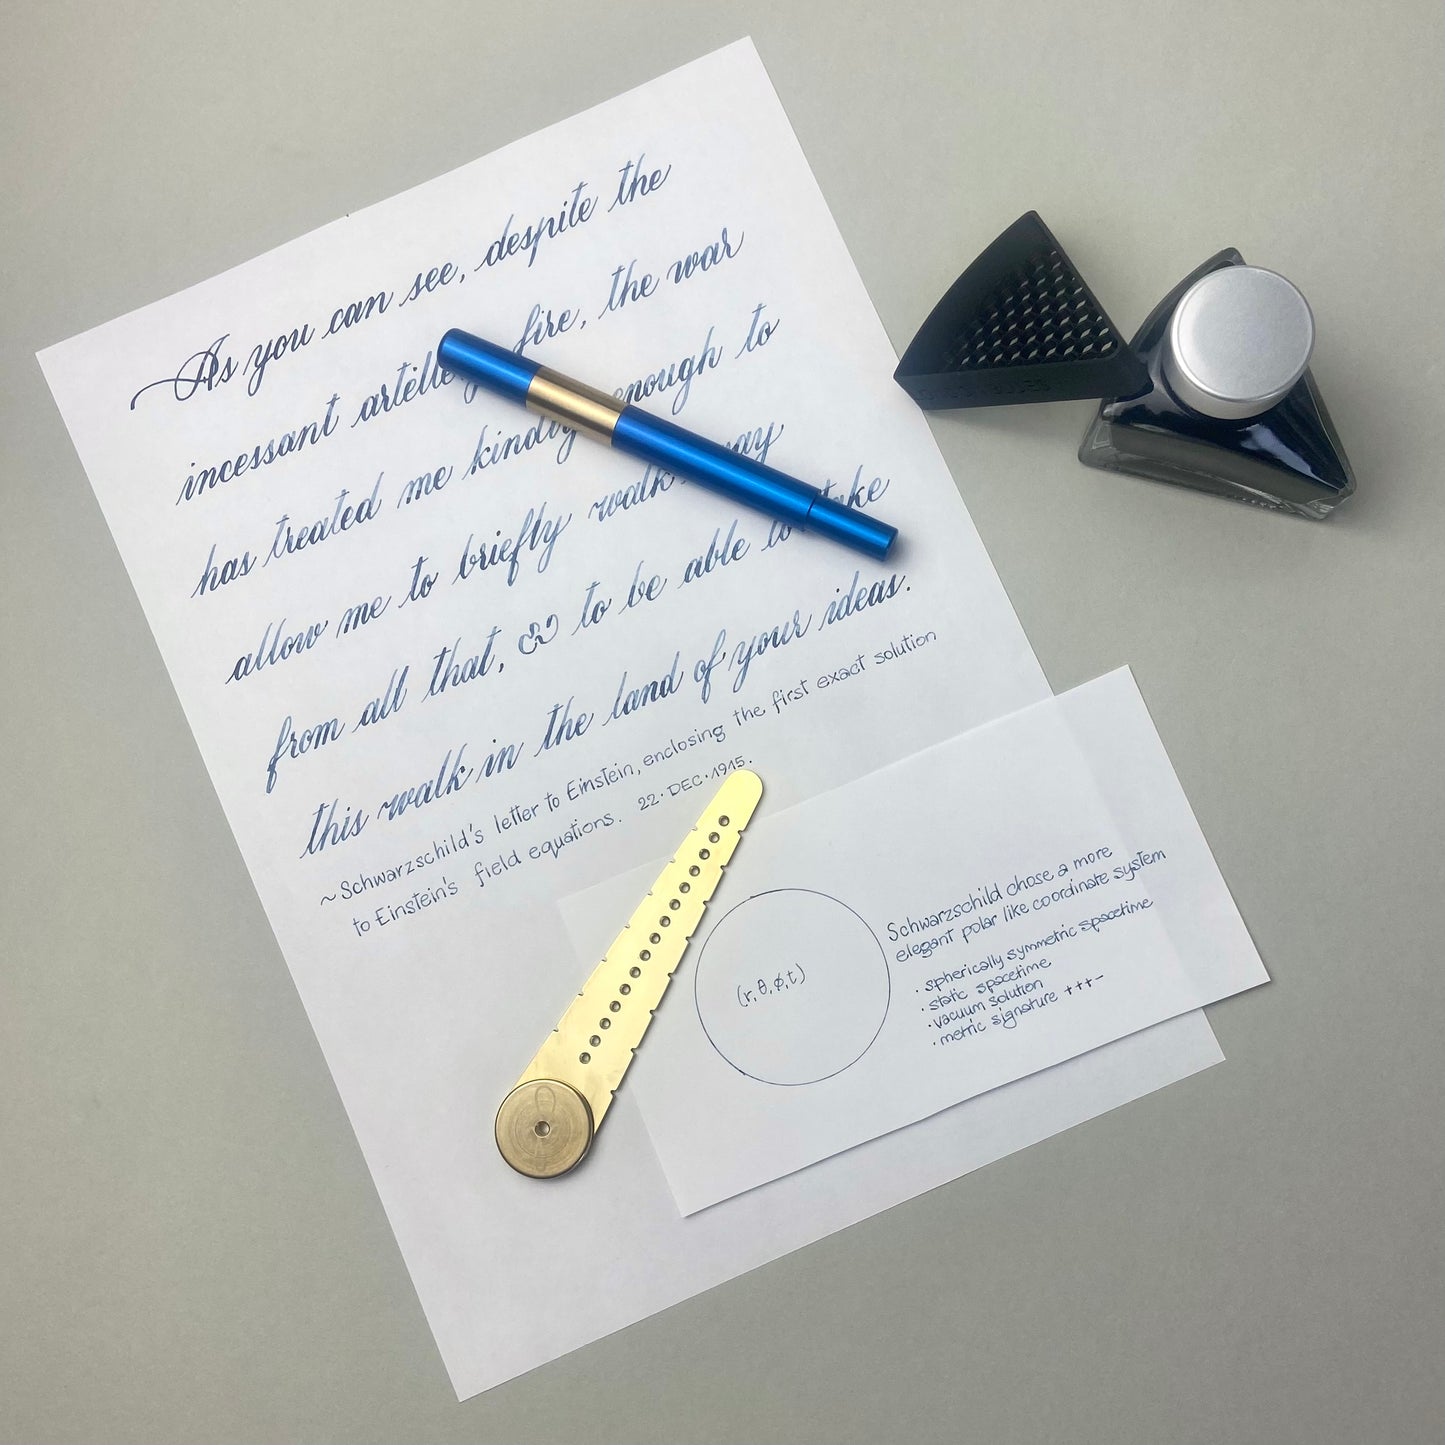 As you can see, despite the
incessant artille fire, the war
has treated me kindly enough to
allow me to briefly walk way
from all that, & to be able to take
this walk in the land of your ideas.
~Schwarzschild's letter to Einstein, enclosing the first exact solution
to Einstein's field equations. 22·DEC·1915.
(r,θ,ϕ,t)
Schwarzschild chose a more
elegant polar like coordinate system
· spherically symmetric spacetime
· static spacetime
· vacuum solution
· metric signature +++-